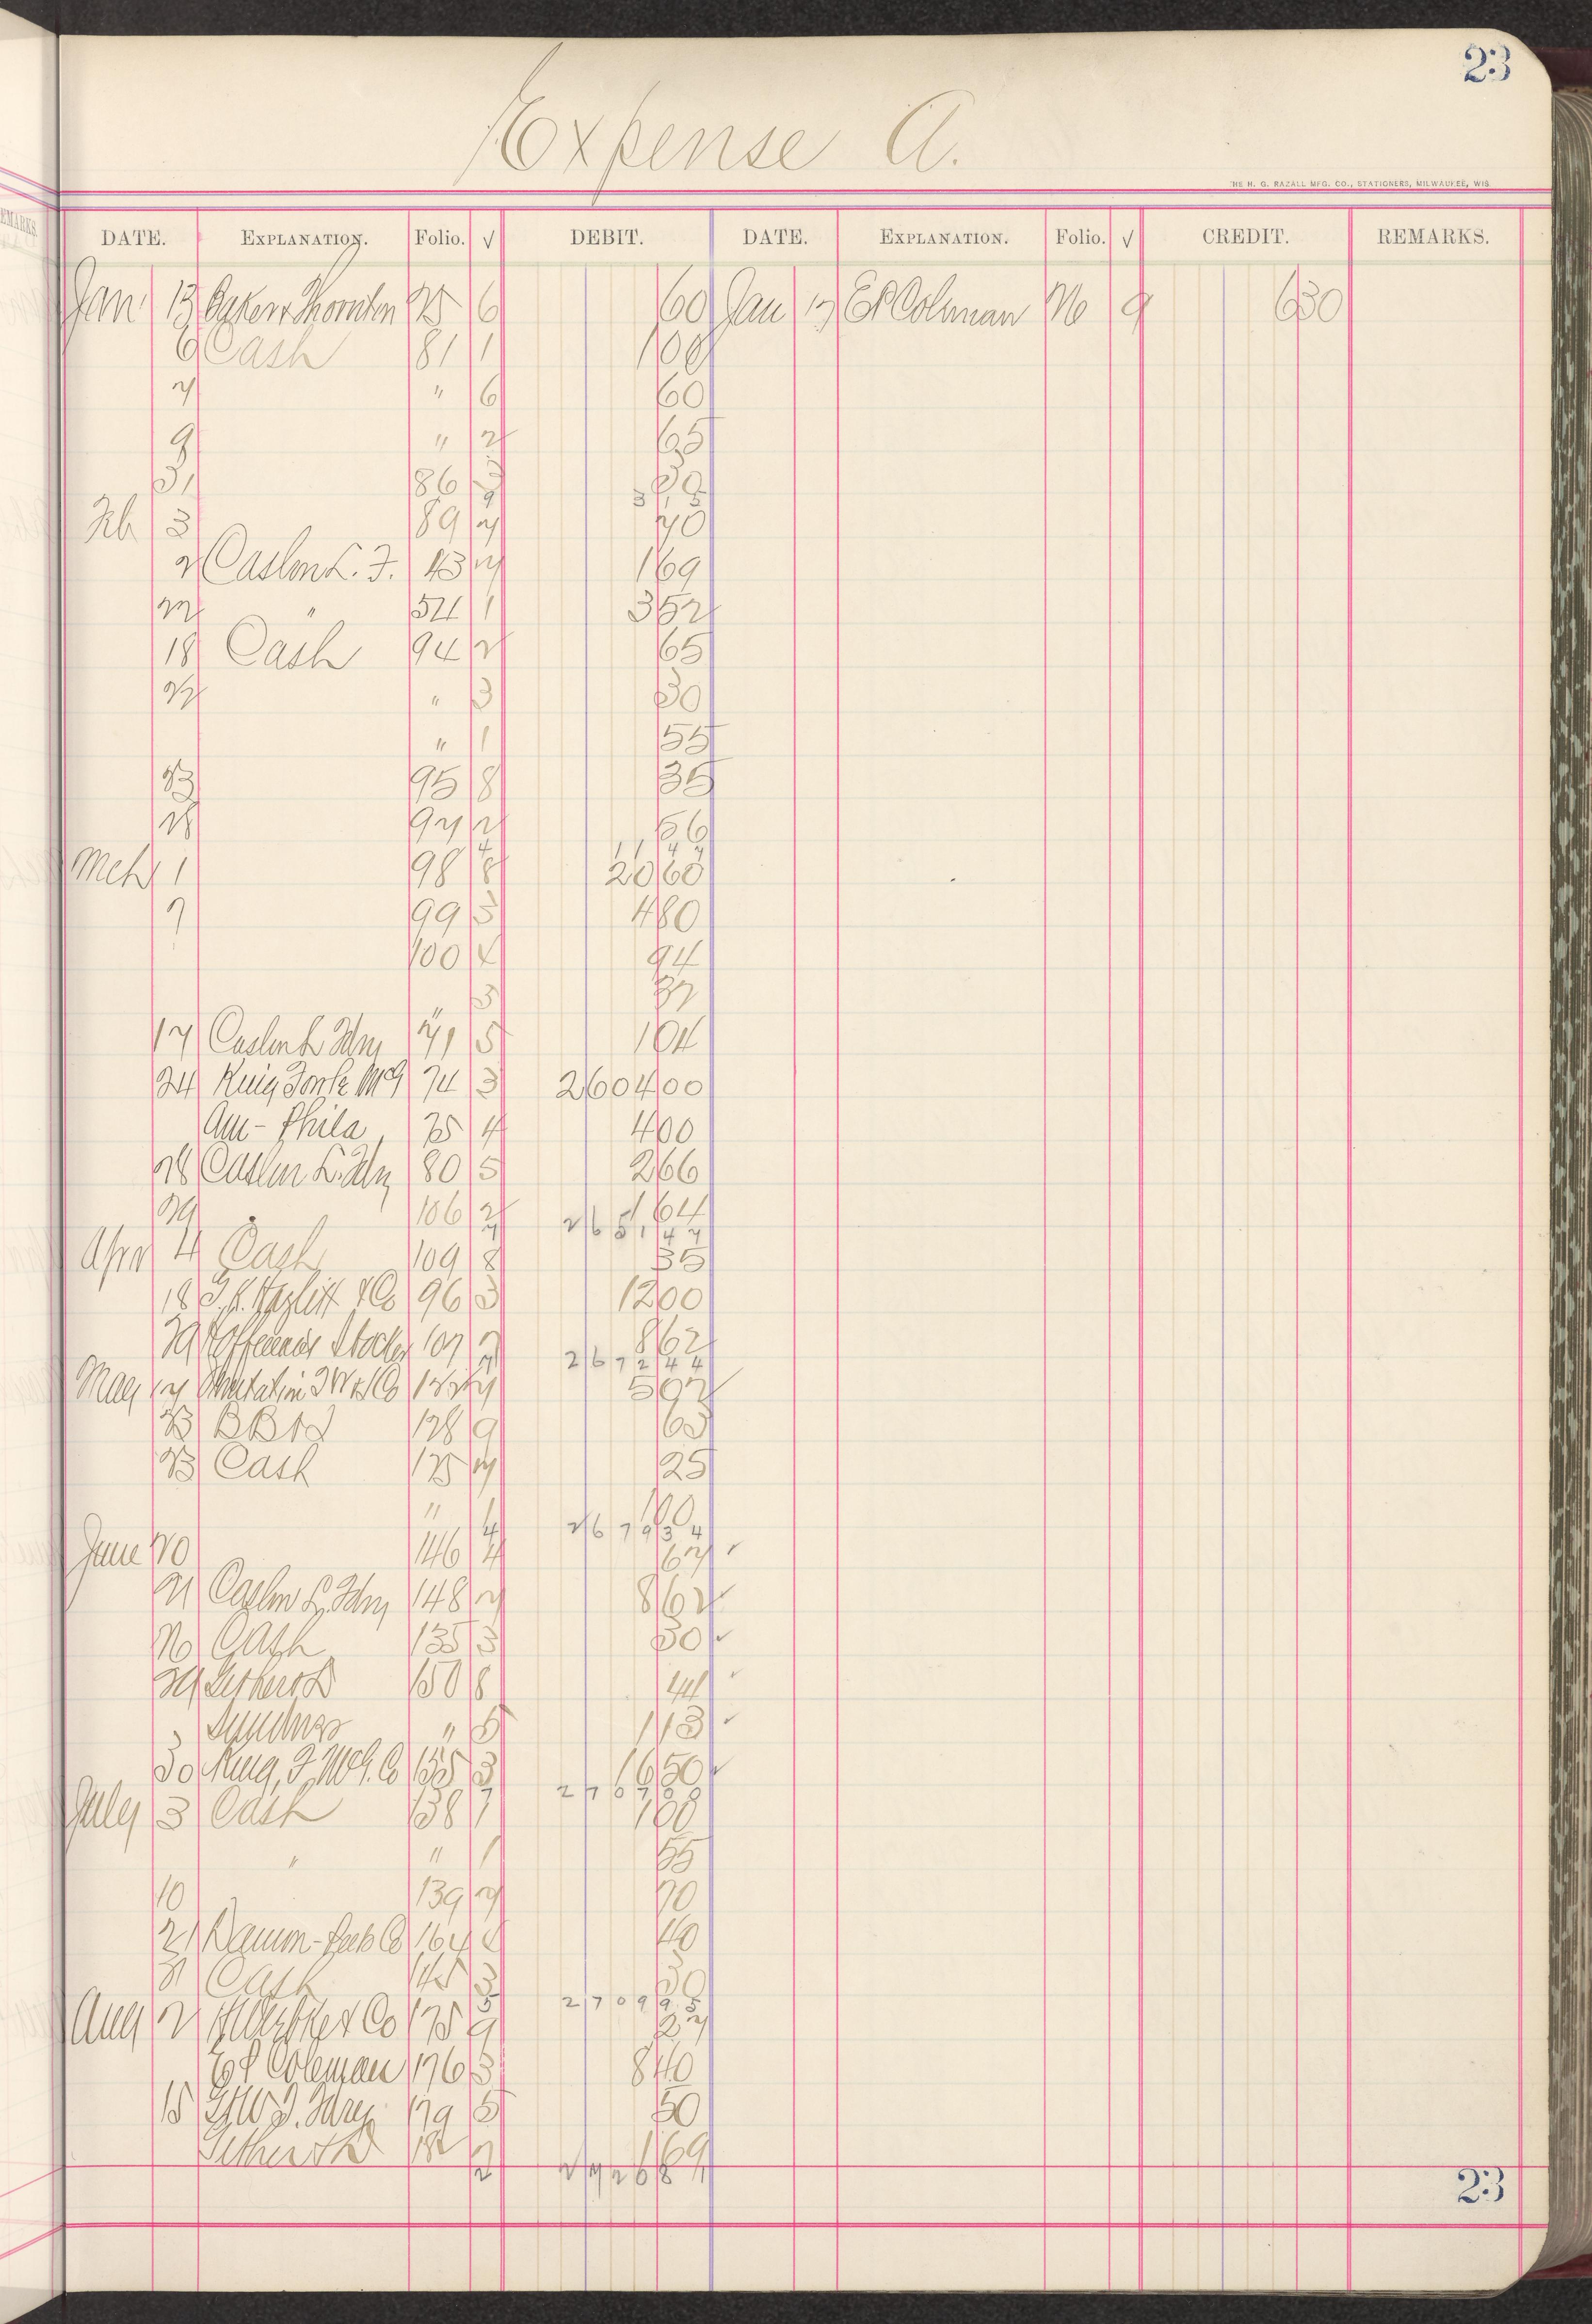 23
Expense A.
THE H. G. RAZALL MFG. CO., STATIONERS, MILWAUKEE, WIS
DATE. EXPLANATION. Folio. √ DEBIT. DATE. EXPLANATION. Folio. √ CREDIT. REMARKS.
Jan 13 Thornton 25 6 60 Jan 13 E P Colman 26 9 630
6 Cash 81 1 100
7 " 6 60
9 " 2 65
31 86 3 30
Feb 3 89 7 70
2 Caslon L. F. 43 7 169
22 " 54 1 352
18 Cash 94 2 65
22 " 3 30
" 1 55
23 95 8 35
28 97 2 56
Mch 1 98 8 2060
7 99 3 480
100 4 94
" 3 37
17 Caslon L Fdry 71 5 104
24 King Fowle McG 74 3 260400
Am - Phila 75 4 400
28 Caslon L. Fdry 80 5 266
29 106 2 164
265147
Apr 4 Cash 109 8 35
18 & Co 96 3 1200
29 107 862
267244
May 17 Co 7 592
23 B B & 128 9 65
23 Cash 125 7 25
" 1 100
267934
June 20 146 4 67
21 Caslon L. Fdry 148 7 862
26 Cash 135 3 30
29 150 8 44
" 5 113
30 King, F. McG. Co 155 3 1650
July 3 Cash 138 1 100
" " 1 55
10 139 7 70
21 Co 164 4 40
31 Cash 145 3 30
270995
Aug 2 & Co 175 9 27
E P Coleman 176 3 840
15 Fdry 179 5 50
182 7 169
2
23